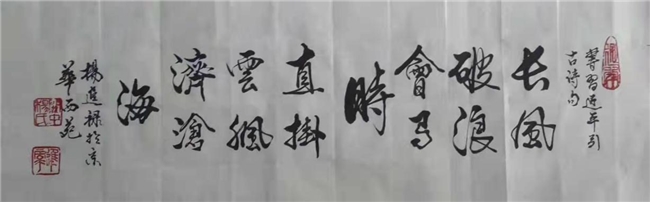 書習近平引
古诗句
長風
破浪
會有
時
直掛
雲帆
濟滄
海
楊於京
華西苑